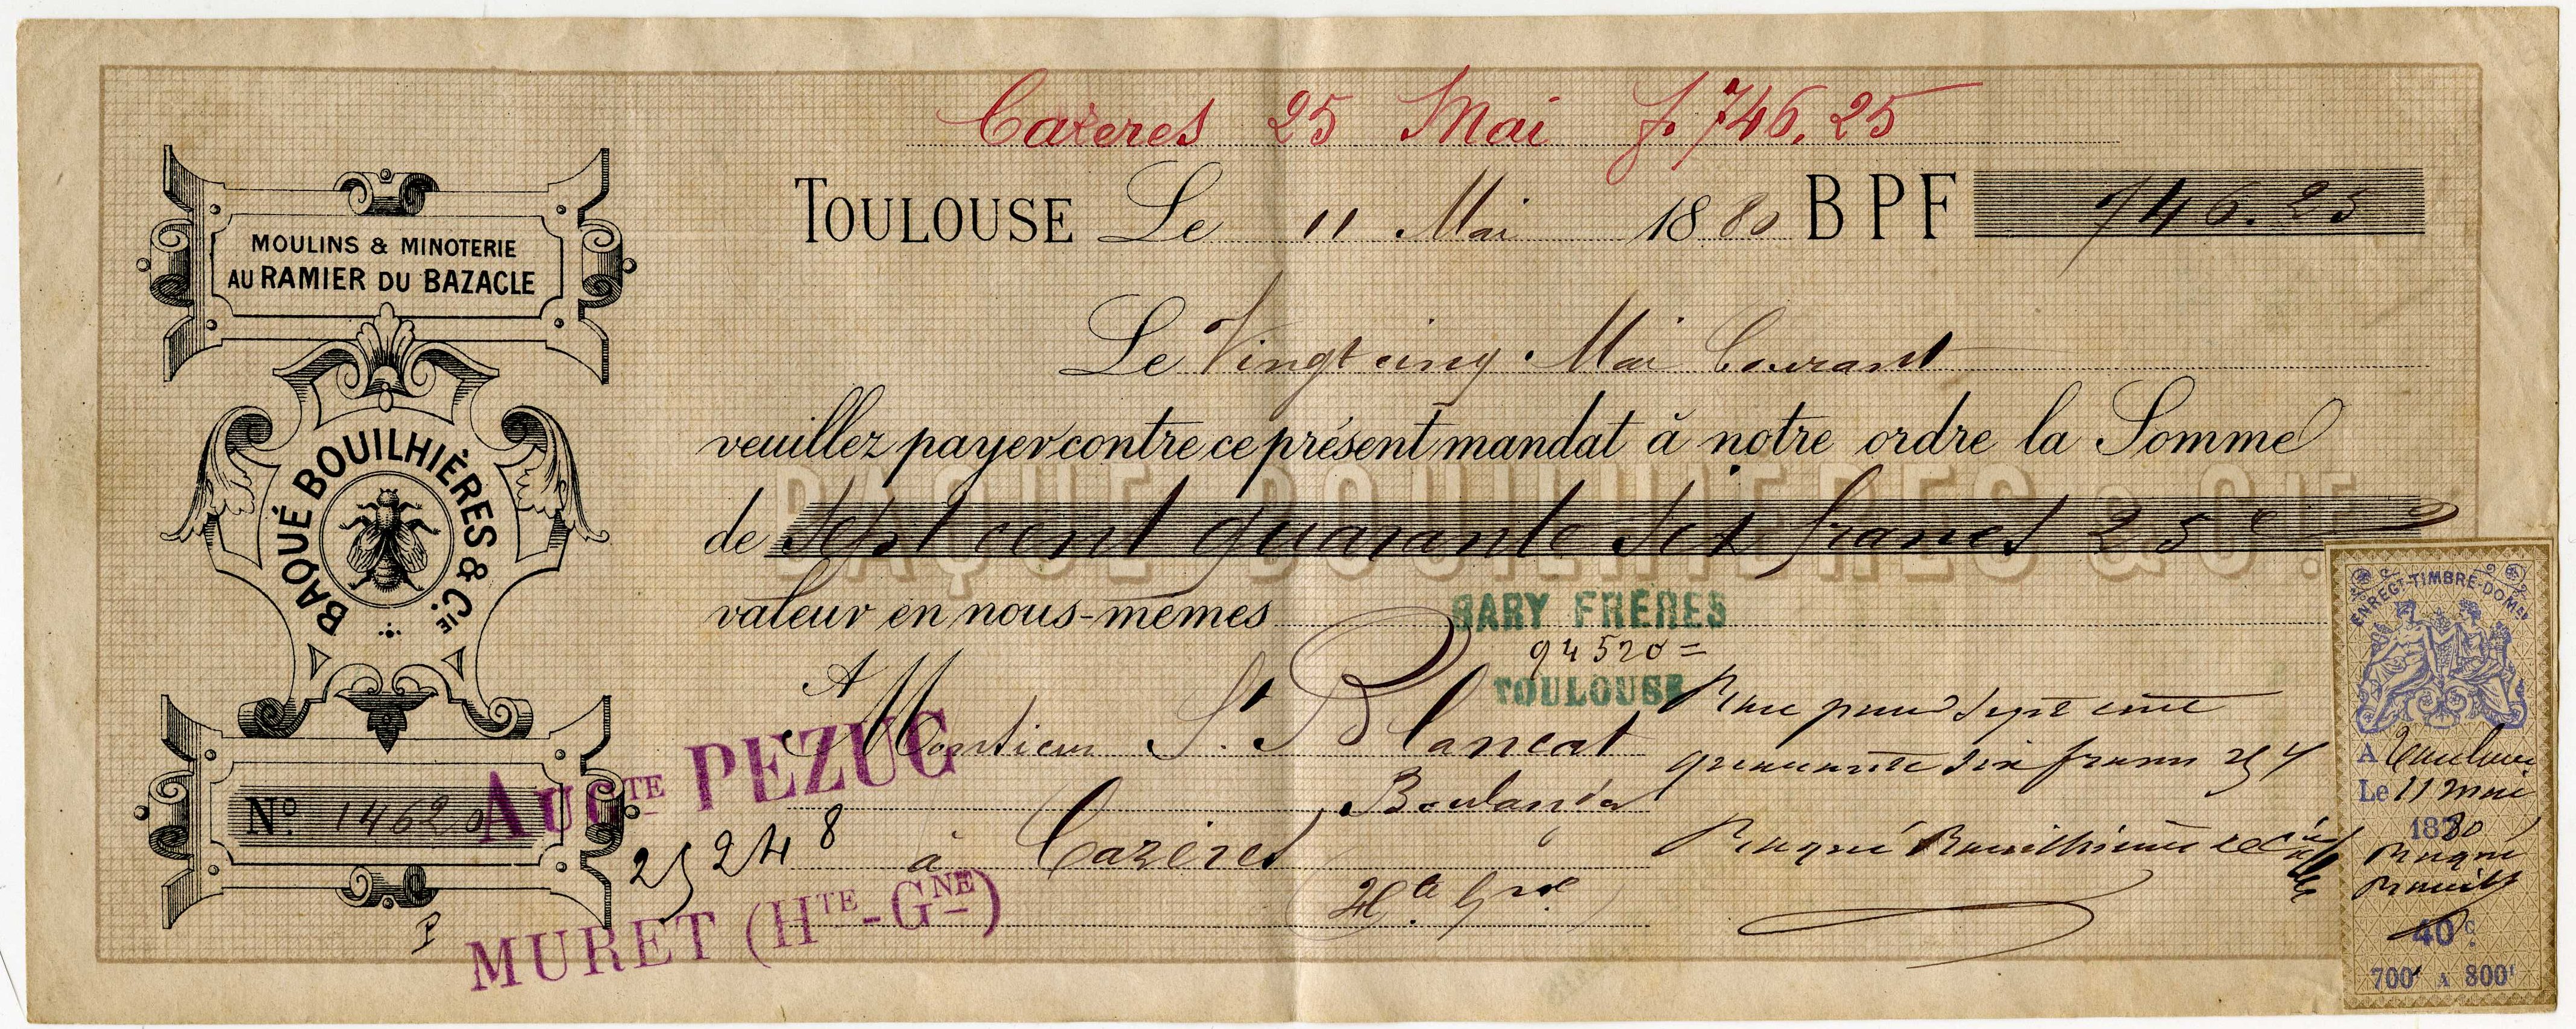 Cazeres 25 Mai f. 746.25
TOULOUSE Le 11 Mai 1880 BPF 746.25
MOULINS & MINOTERIE
AU RAMIER DU BAZACLE
Le Vingt cinq Mai Courant
veuillez payer contre ce présent mandat à notre ordre la Somme
BAQUÉ BOUILHIÈRES & CIE
de Sept cent quarante six francs 25 c
BAQUÉ BOUILHIÈRES & CIE.
valeur en nous-mêmes
BARY FRERES
94520=
TOULOUSE
A Monsieur St. Blancat
Boulanger
à Cazères
Hte Gne
AUGTE PEZUC
MURET (HTE-GNE)
No. 14620
25248
P
Pour sept cent
quarante six francs 25
Baqué Bouilhières & Cie
ENREGT-TIMBRE-DOMES
A Toulouse
Le 11 mai
1880
Baqué
Bouilh
40 C.
700f A 800f